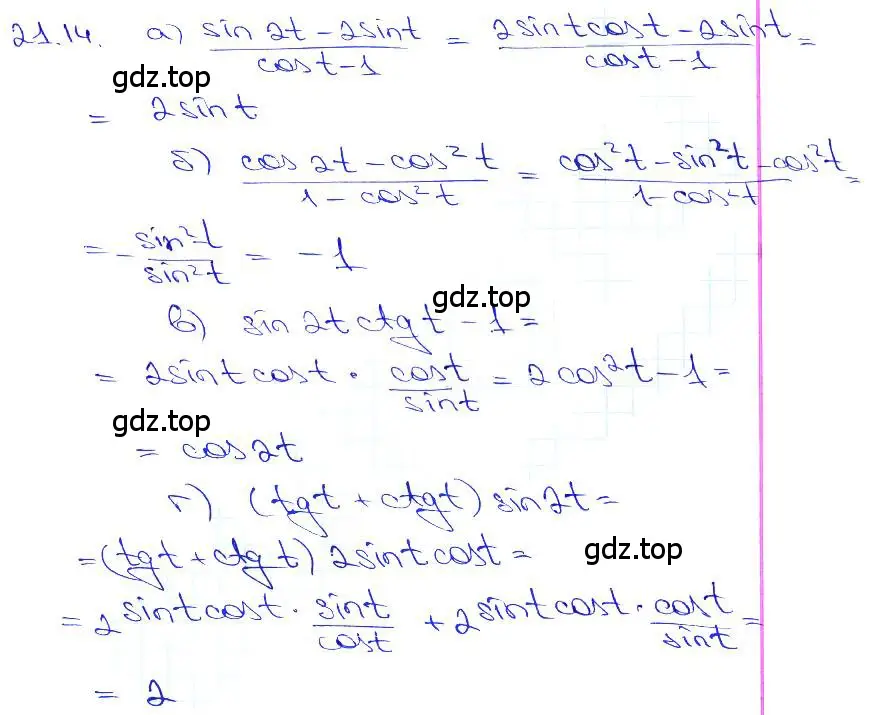 21.14. а) (sin 2t - 2sint)/(cost - 1) = (2sintcost - 2sint)/(cost - 1) =
gdz.top
= 2sint
б) (cos 2t - cos²t)/(1 - cos²t) = (cos²t - sin²t - cos²t)/(1 - cos²t) =
= - sin²t/sin²t = -1
gdz.top
в) sin 2t ctg t - 1 =
= 2sintcost · cost/sint = 2cos²t - 1 =
gdz.top
= cos2t
г) (tgt + ctgt) sin2t =
= (tgt + ctgt) 2sintcost =
gdz.top
= 2sintcost · sint/cost + 2sintcost · cost/sint =
= 2